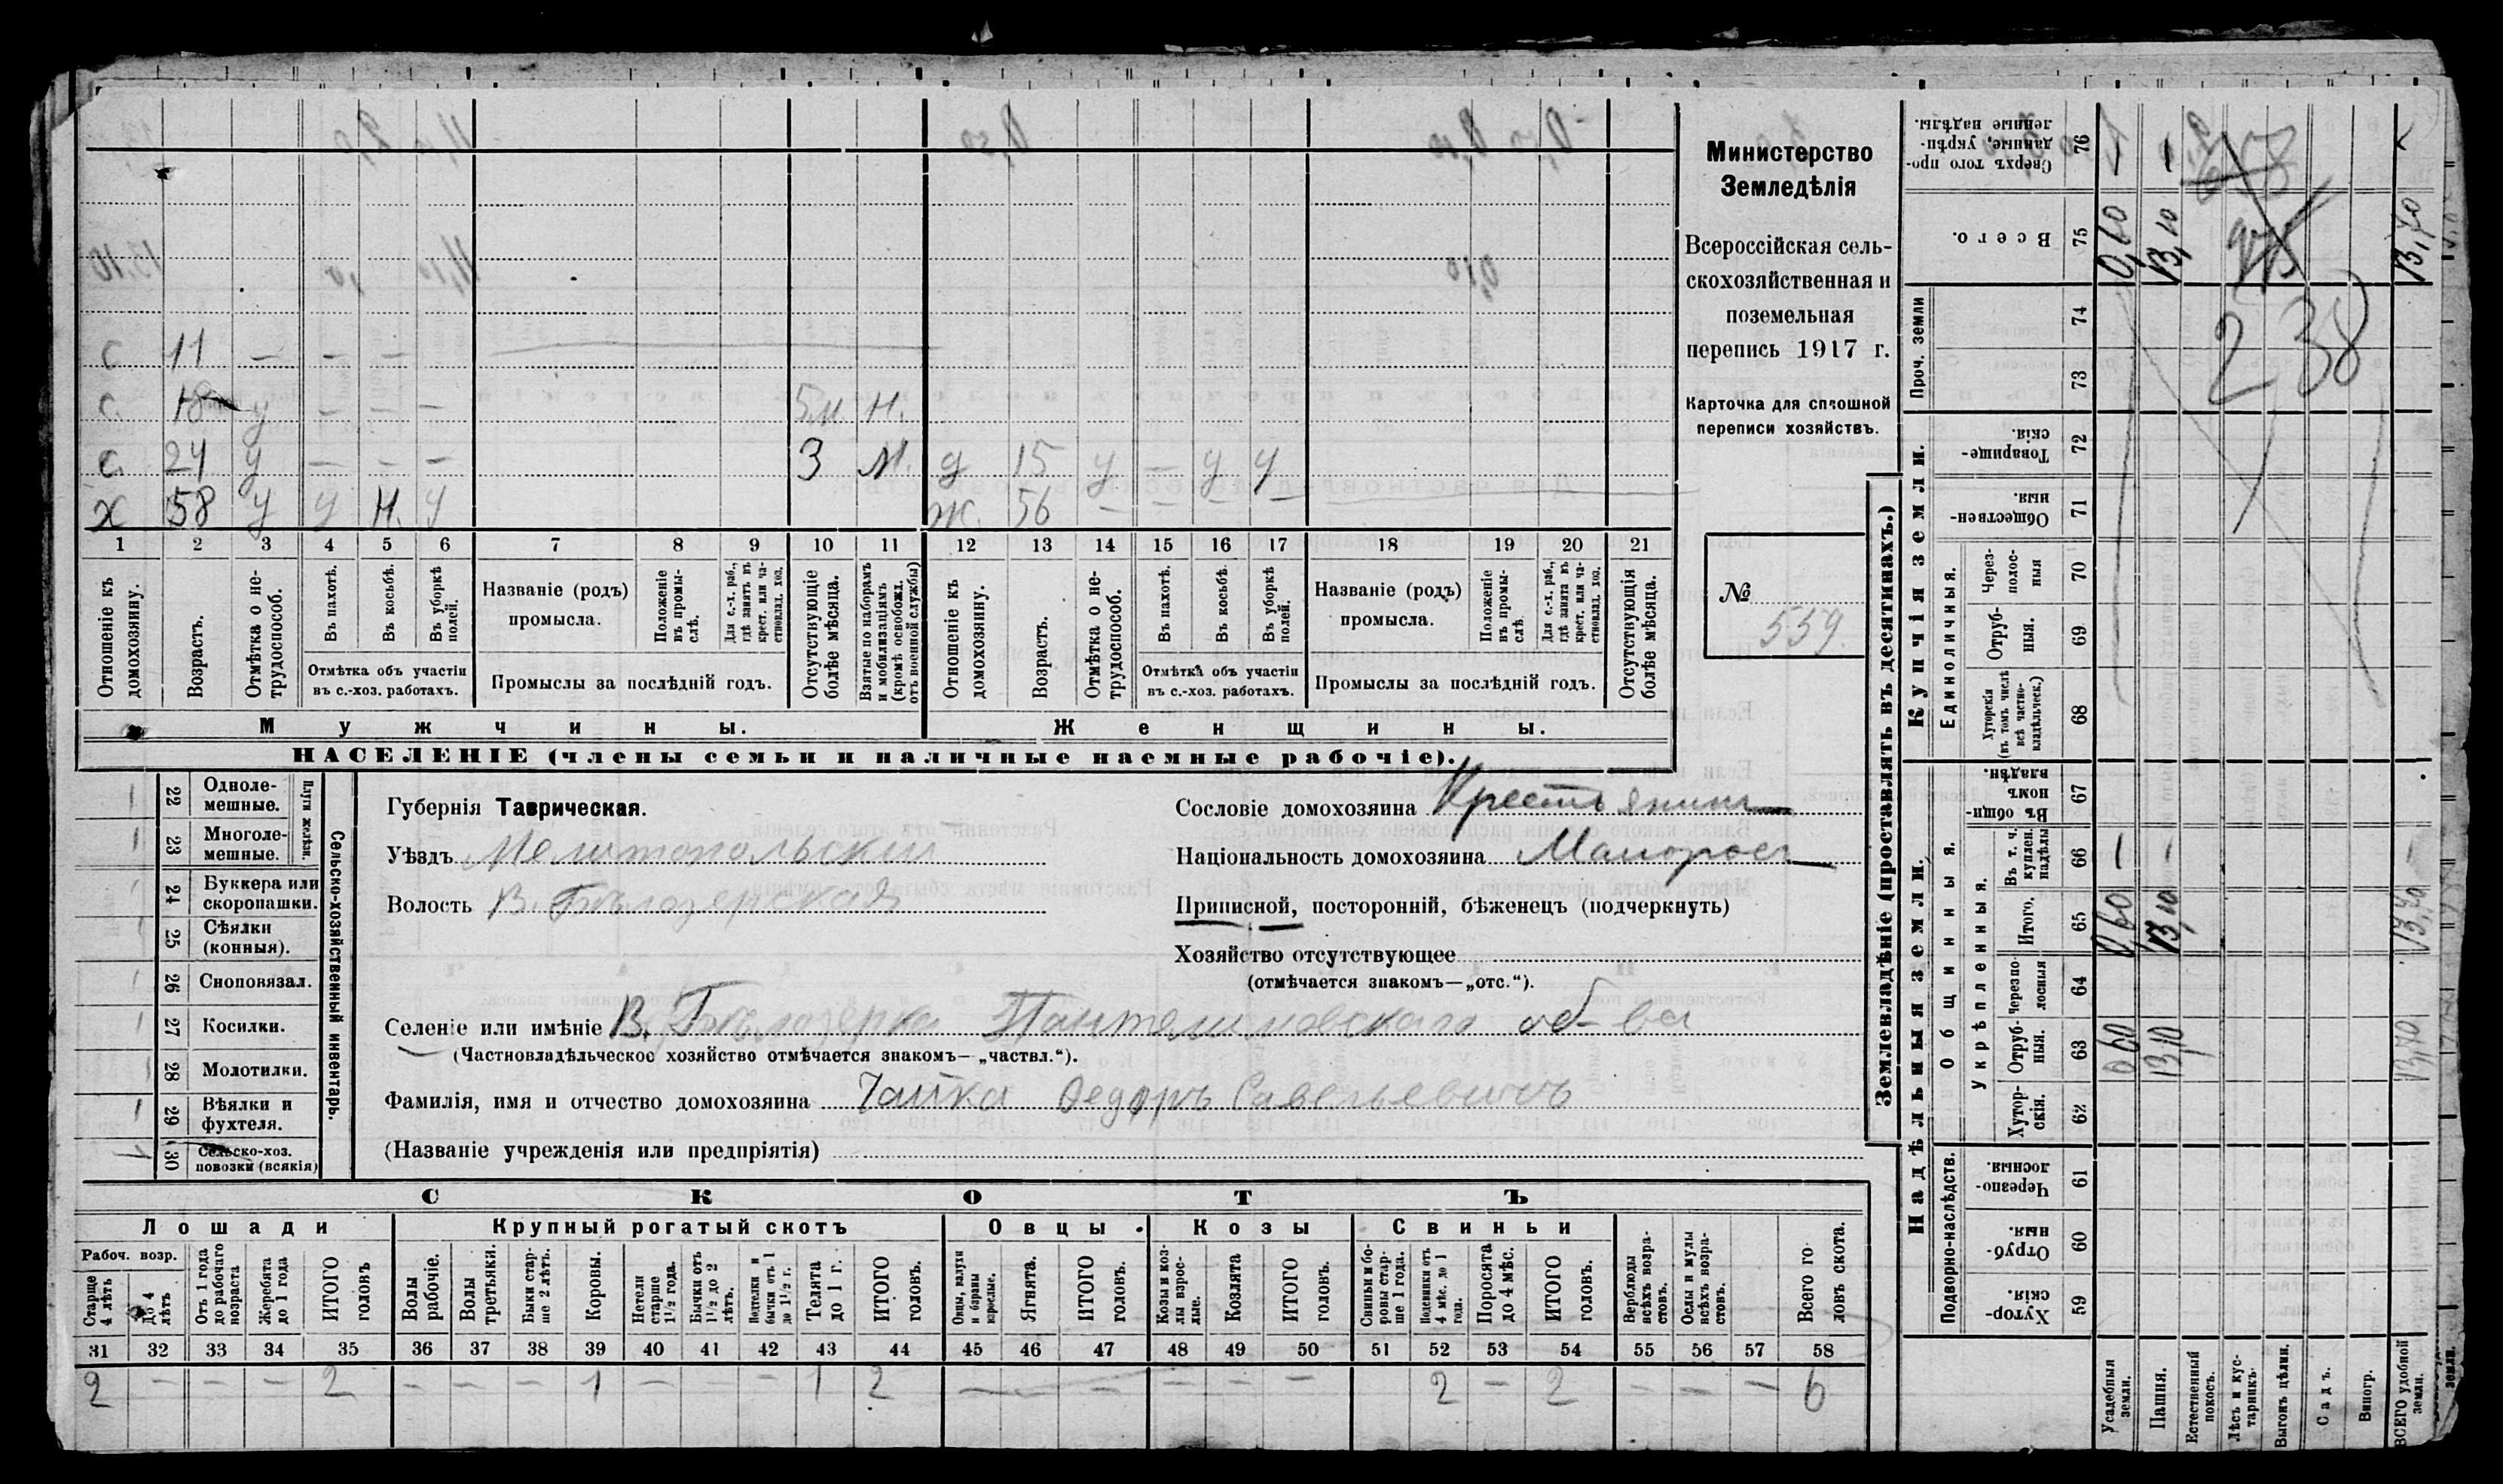 с 11 — — — —
с. 18 у — — — 5 м. н.
с. 24 у — — — 3 м. д 15 у — у у
х 58 у у н. у ж. 56 — — — —
1 2 3 4 5 6 7 8 9 10 11 12 13 14 15 16 17 18 19 20 21
Отношеніе къ домохозяину.
Возрастъ.
Отмѣтка о не-трудоспособ.
Въ пахотѣ.
Въ косьбѣ.
Въ уборкѣ полей.
Отмѣтка объ участіи
въ с.-хоз. работахъ.
Названіе (родъ)
промысла.
Положеніе въ промы-слѣ.
Для с.-х. раб., гдѣ занятъ въ крест. или ча-стновлад. хоз.
Промыслы за послѣдній годъ.
Отсутствующіе болѣе мѣсяца.
Взятые по наборамъ и мобилизаціямъ (кромѣ освобожд. отъ военной службы)
Отношеніе къ домохозяину.
Возрастъ.
Отмѣтка о не-трудоспособ.
Въ пахотѣ.
Въ косьбѣ.
Въ уборкѣ полей.
Отмѣтка объ участіи
въ с.-хоз. работахъ.
Названіе (родъ)
промысла.
Положеніе въ промы-слѣ.
Для с.-х. раб., гдѣ занята въ крест. или ча-стновлад. хоз.
Промыслы за послѣдній годъ.
Отсутствующія болѣе мѣсяца.
Мужчины. Женщины.
НАСЕЛЕНІЕ (члены семьи и наличные наемные рабочіе).
Министерство
Земледѣлія
Всероссійская сель-
скохозяйственная и
поземельная
перепись 1917 г.
Карточка для сплошной
переписи хозяйствъ.
№
539.
22 Одноле-мешные.
23 Многоле-мешные.
Плуги желѣзн.
24 Буккера или скоропашки.
25 Сѣялки (конныя).
26 Сноповязал.
27 Косилки.
28 Молотилки.
29 Вѣялки и фухтеля.
30 Сельско-хоз. повозки (всякія)
Сельско-хозяйственный инвентарь.
Губернія Таврическая.
Уѣздъ Мелитопольский
Волость В. Бѣлозерская
Сословіе домохозяина Крестьянинъ
Національность домохозяина Малоросъ
Приписной, посторонній, бѣженецъ (подчеркнуть)
Хозяйство отсутствующее
(отмѣчается знакомъ—„отс.“).
Селеніе или имѣніе В. Бѣлозерка Пантелимовскаго об-ва
(Частновладѣльческое хозяйство отмѣчается знакомъ—„частвл.“).
Фамилія, имя и отчество домохозяина Чайка Федоръ Савельевичъ
(Названіе учрежденія или предпріятія)
СКОТЪ
Лошади Крупный рогатый скотъ Овцы. Козы Свиньи
Рабоч. возр.
Старше 4 лѣтъ
До 4 лѣтъ
Отъ 1 года до рабочаго возраста
Жеребята до 1 года
ИТОГО головъ
Волы рабочіе.
Волы третьяки.
Быки стар-ше 2 лѣтъ.
Коровы.
Нетели старше 1½ года.
Бычки отъ 1½ до 2 лѣтъ.
Подтелки и бычки отъ 1 до 1½ г.
Телята до 1 г.
ИТОГО головъ.
Овцы, валухи и бараны взрослые.
Ягнята.
ИТОГО головъ.
Козы и коз-лы взрос-лые.
Козлята
ИТОГО головъ.
Свиньи и бо-ровы стар-ше 1 года.
Подсвинки отъ 4 мѣс. до 1 года.
Поросята до 4 мѣс.
ИТОГО головъ.
Верблюды всѣхъ возра-стовъ.
Ослы и мулы всѣхъ возра-стовъ.
Всего го-ловъ скота.
31 32 33 34 35 36 37 38 39 40 41 42 43 44 45 46 47 48 49 50 51 52 53 54 55 56 57 58
2 — — — 2 — — — 1 — — — 1 2 — — — — — — 2 — 2 — — — 6
Землевладѣніе (проставлять въ десятинахъ.)
Надѣльныя земли. Купчія земли.
Подворно-наслѣдств.
Общинныя.
Укрѣпленныя.
Единоличныя.
Проч. земли
59 Хутор-скія.
60 Отруб-ныя.
61 Черезпо-лосныя.
62 Хутор-скія.
63 Отруб-ныя. 0 60 13,10 13,70
64 Черезпо-лосныя
65 Итого. 0,60 13,10 13,70
66 Въ т. ч. куплен. надѣлы — — —
67 Въ общин. владѣн.
68 Хуторскія (въ томъ числѣ всѣ частно-владѣльческ.)
69 Отруб-ныя.
70 Через-полос-ныя
71 Обществен-ныя.
72 Товарище-скія.
73
74
75 Всего. 0,60 13,10 13,70
76 Сверхъ того про-данные, укрѣп-ленные надѣлы. — —
238
Усадебныя земли.
Пашня.
Естественный покосъ.
Лѣсъ и кус-тарникъ
Выгонъ цѣлин.
Садъ.
Виногр.
ВСЕГО удобной земли.